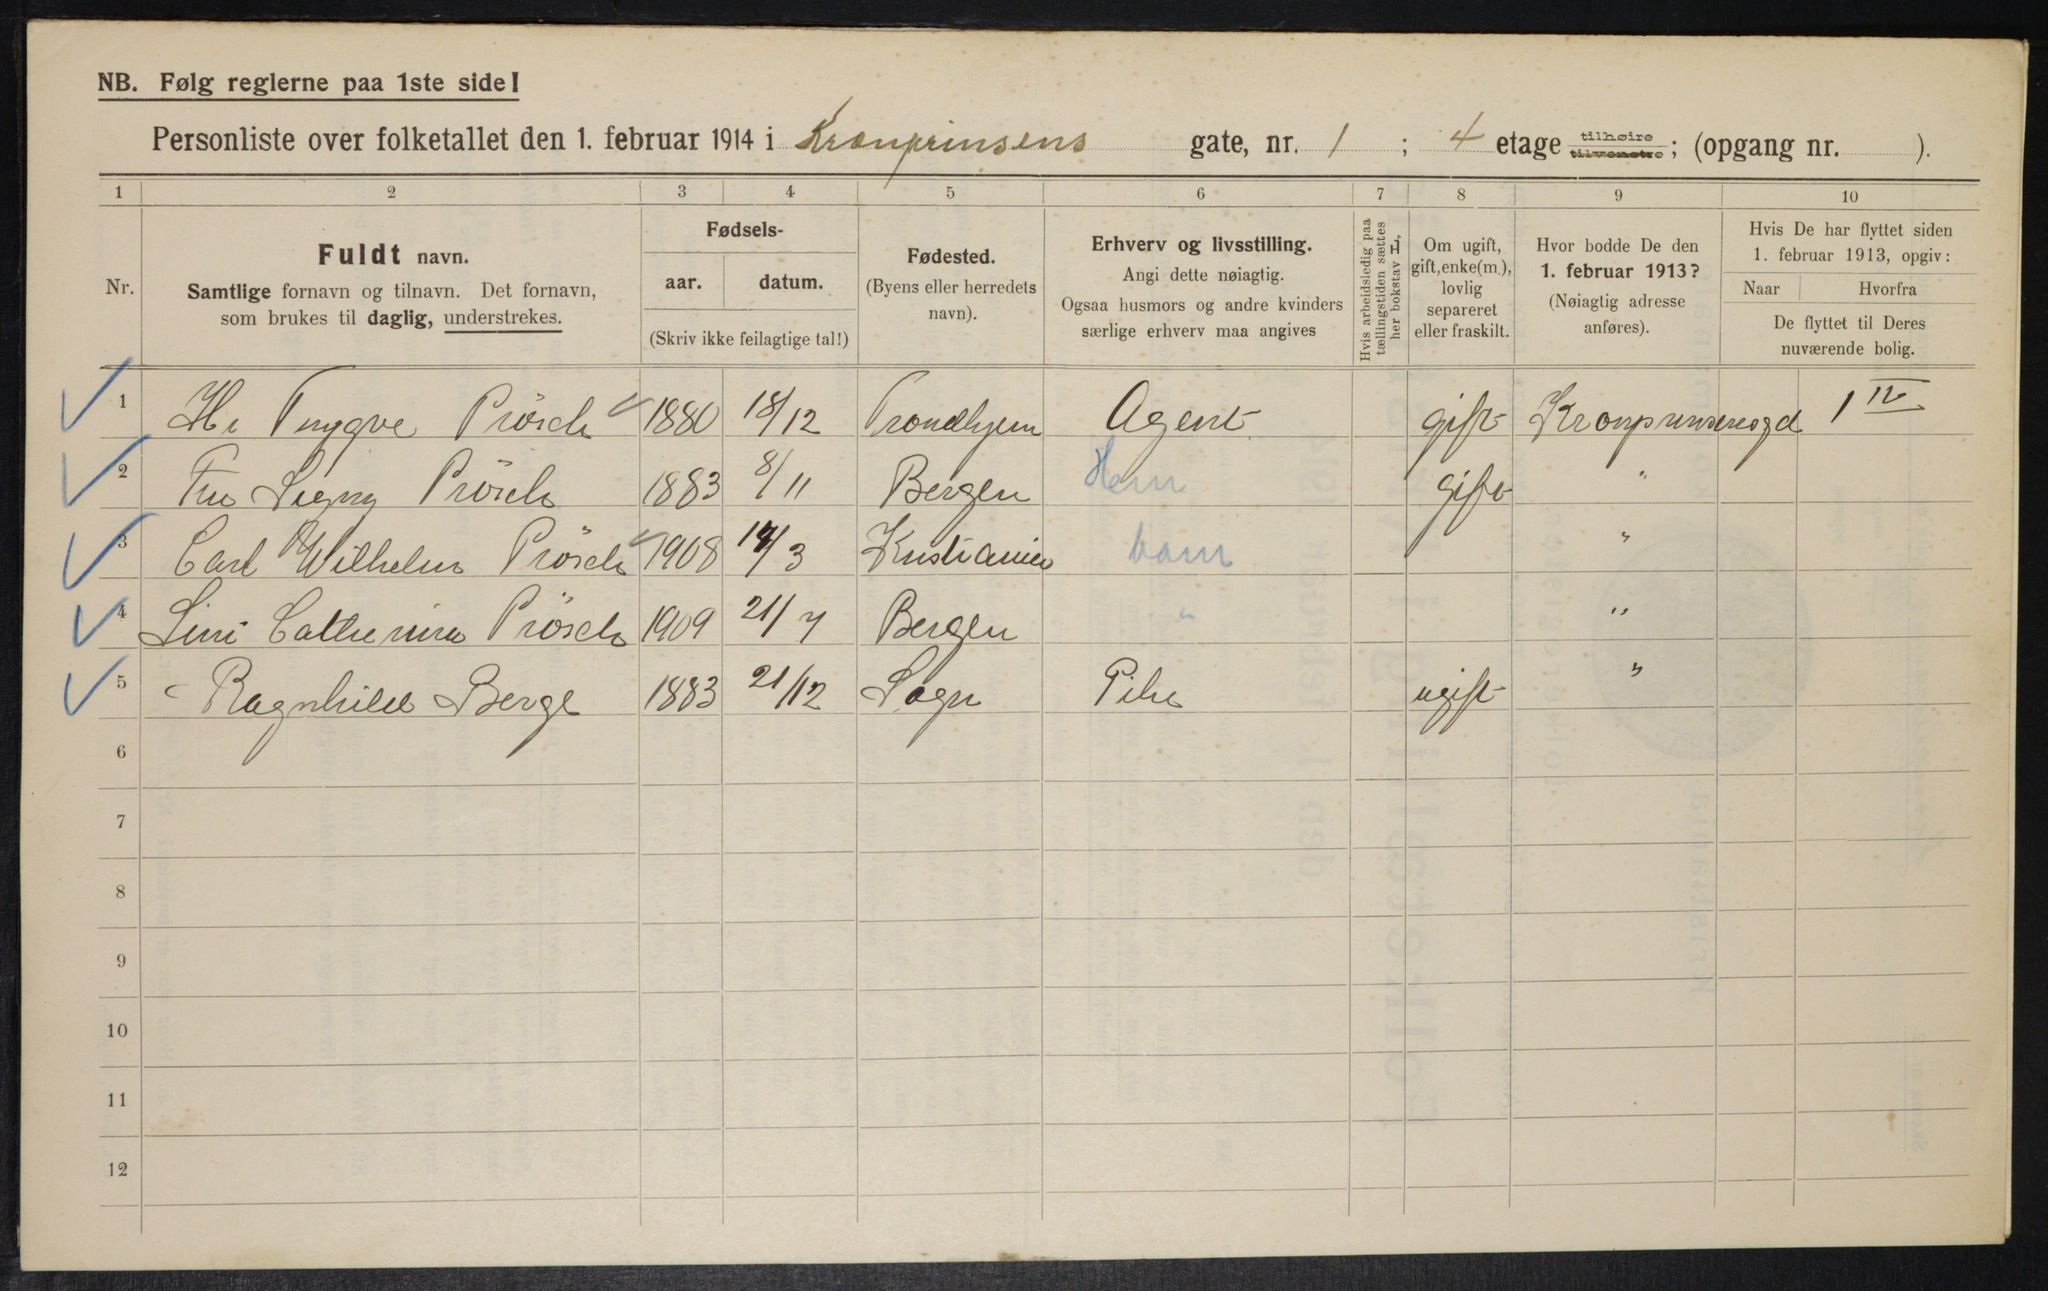 NB. Følg reglerne paa 1ste side!
Personliste over folketallet den 1. februar 1914 i Kronprinsens gate, nr. 1 ; 4 etage tilhøire tilvenstre ; (opgang nr. ).
1 2 3 4 5 6 7 8 9 10
Nr.
Fuldt navn.
Samtlige fornavn og tilnavn. Det fornavn,
som brukes til daglig, understrekes.
Fødsels-
aar. datum.
(Skriv ikke feilagtige tal!)
Fødested.
(Byens eller herredets
navn).
Erhverv og livsstilling.
Angi dette nøiagtig.
Ogsaa husmors og andre kvinders
særlige erhverv maa angives
Hvis arbeidsledig paa
tællingstiden sættes
her bokstav L,
Om ugift,
gift, enke(m.),
lovlig
separeret
eller fraskilt.
Hvor bodde De den
1. februar 1913?
(Nøiagtig adresse
anføres).
Hvis De har flyttet siden
1. februar 1913, opgiv:
Naar Hvorfra
De flyttet til Deres
nuværende bolig.
1 Hr Trygve Prösch 1880 18/12 Trondhjem Agent gift Kronprinsensgd 1 IV
2 Fru Signy Prösch 1883 8/11 Bergen Hem gift "
3 Carl Wilhelm Prösch 1908 /3 Kristiania barn "
4 Catherina Prösch 1909 21/7 Bergen " "
5 Ragnhild Berge 1883 21/12 Sogn Pike ugift "
6
7
8
9
10
11
12